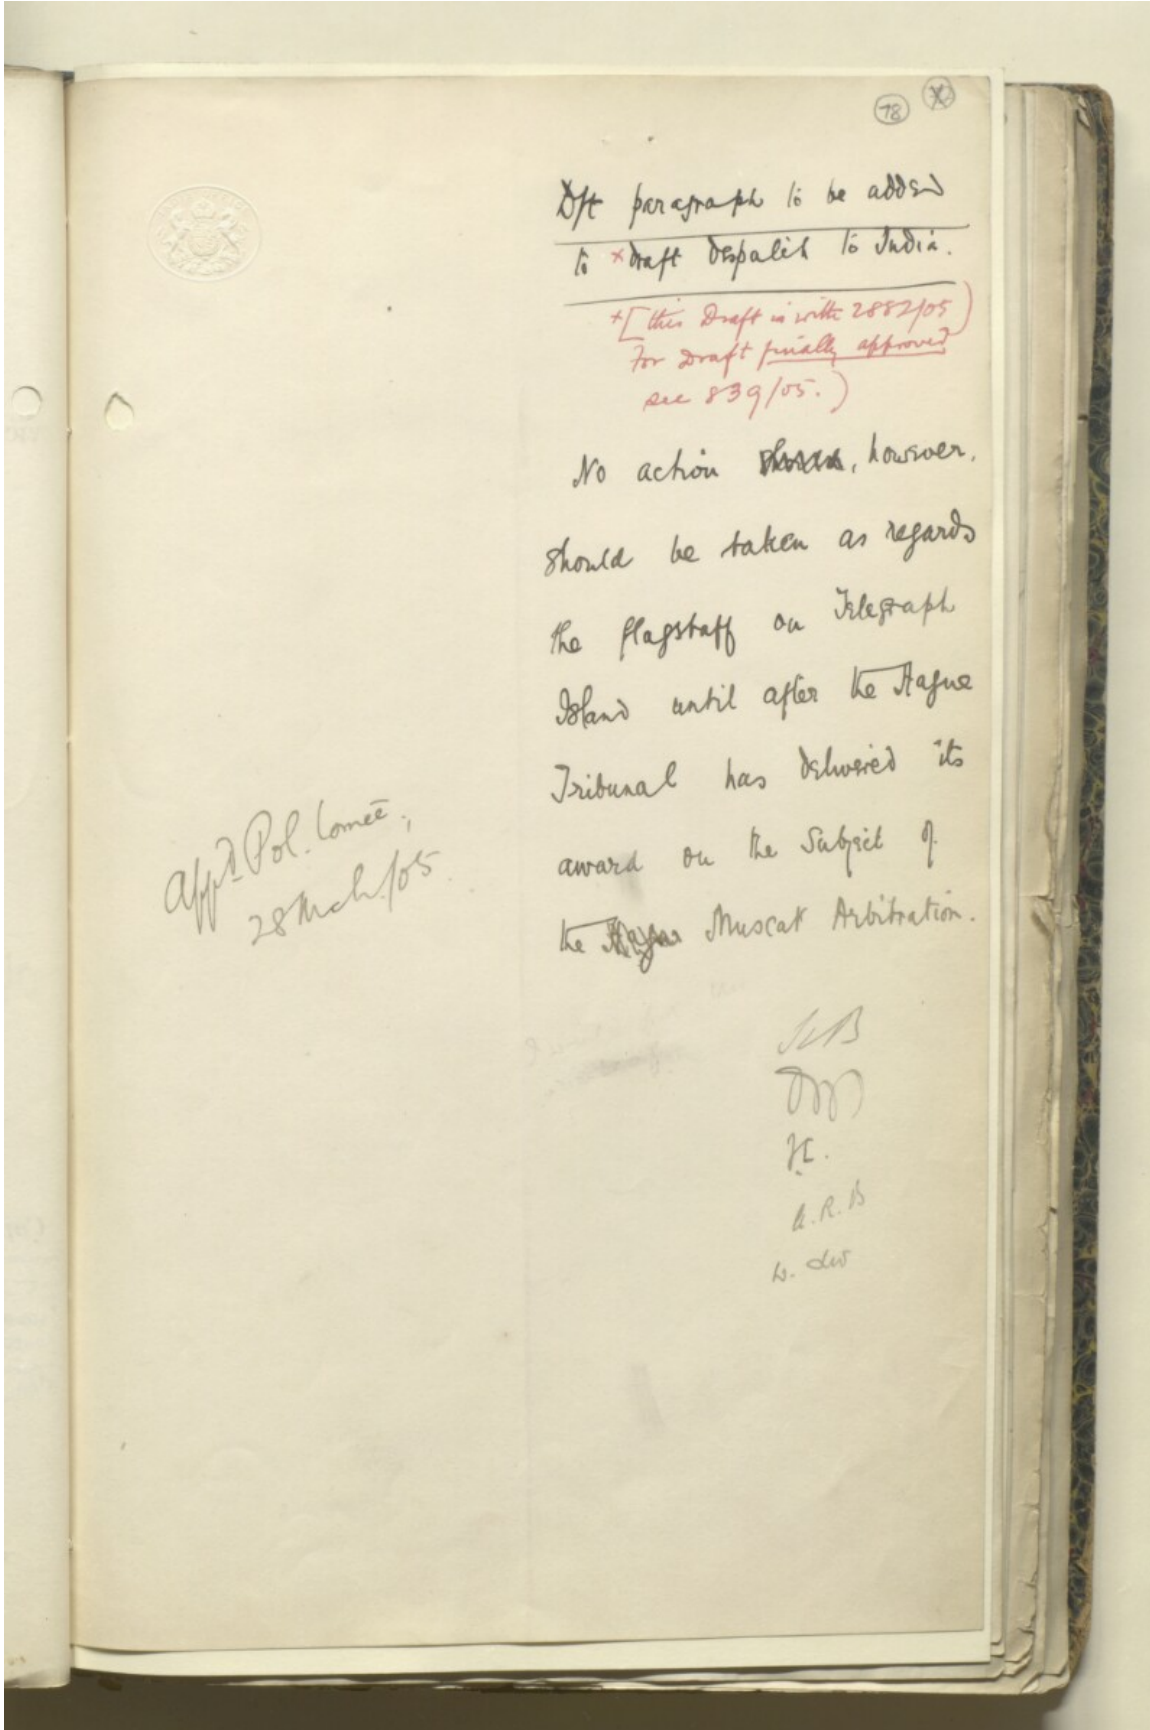 78
Dft paragraph to be added
to × draft despatch to India.
× [this Draft is with 2882/05)
For Draft finally approved
see 839/05.)
No action should, however,
should be taken as regards
the flagstaff on Telegraph
Island until after the Hague
Tribunal has delivered its
award on the subject of
the Hague Muscat Arbitration.
Appd. Pol. Comee,
28 Mch/05.
A.R.B